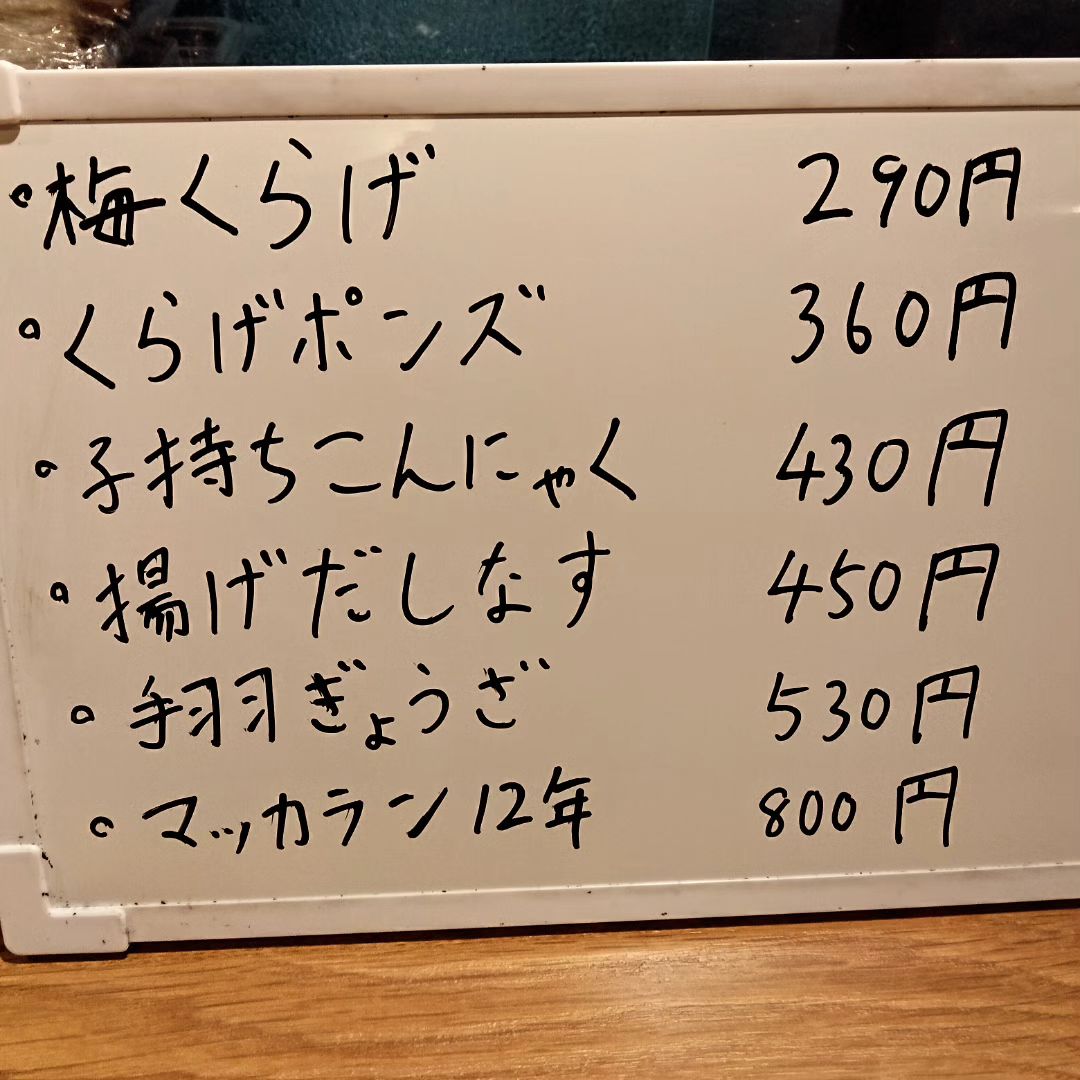 ・梅くらげ 290円
・くらげポンズ 360円
・子持ちこんにゃく 430円
・揚げだしなす 450円
・手羽ぎょうざ 530円
・マッカラン12年 800円